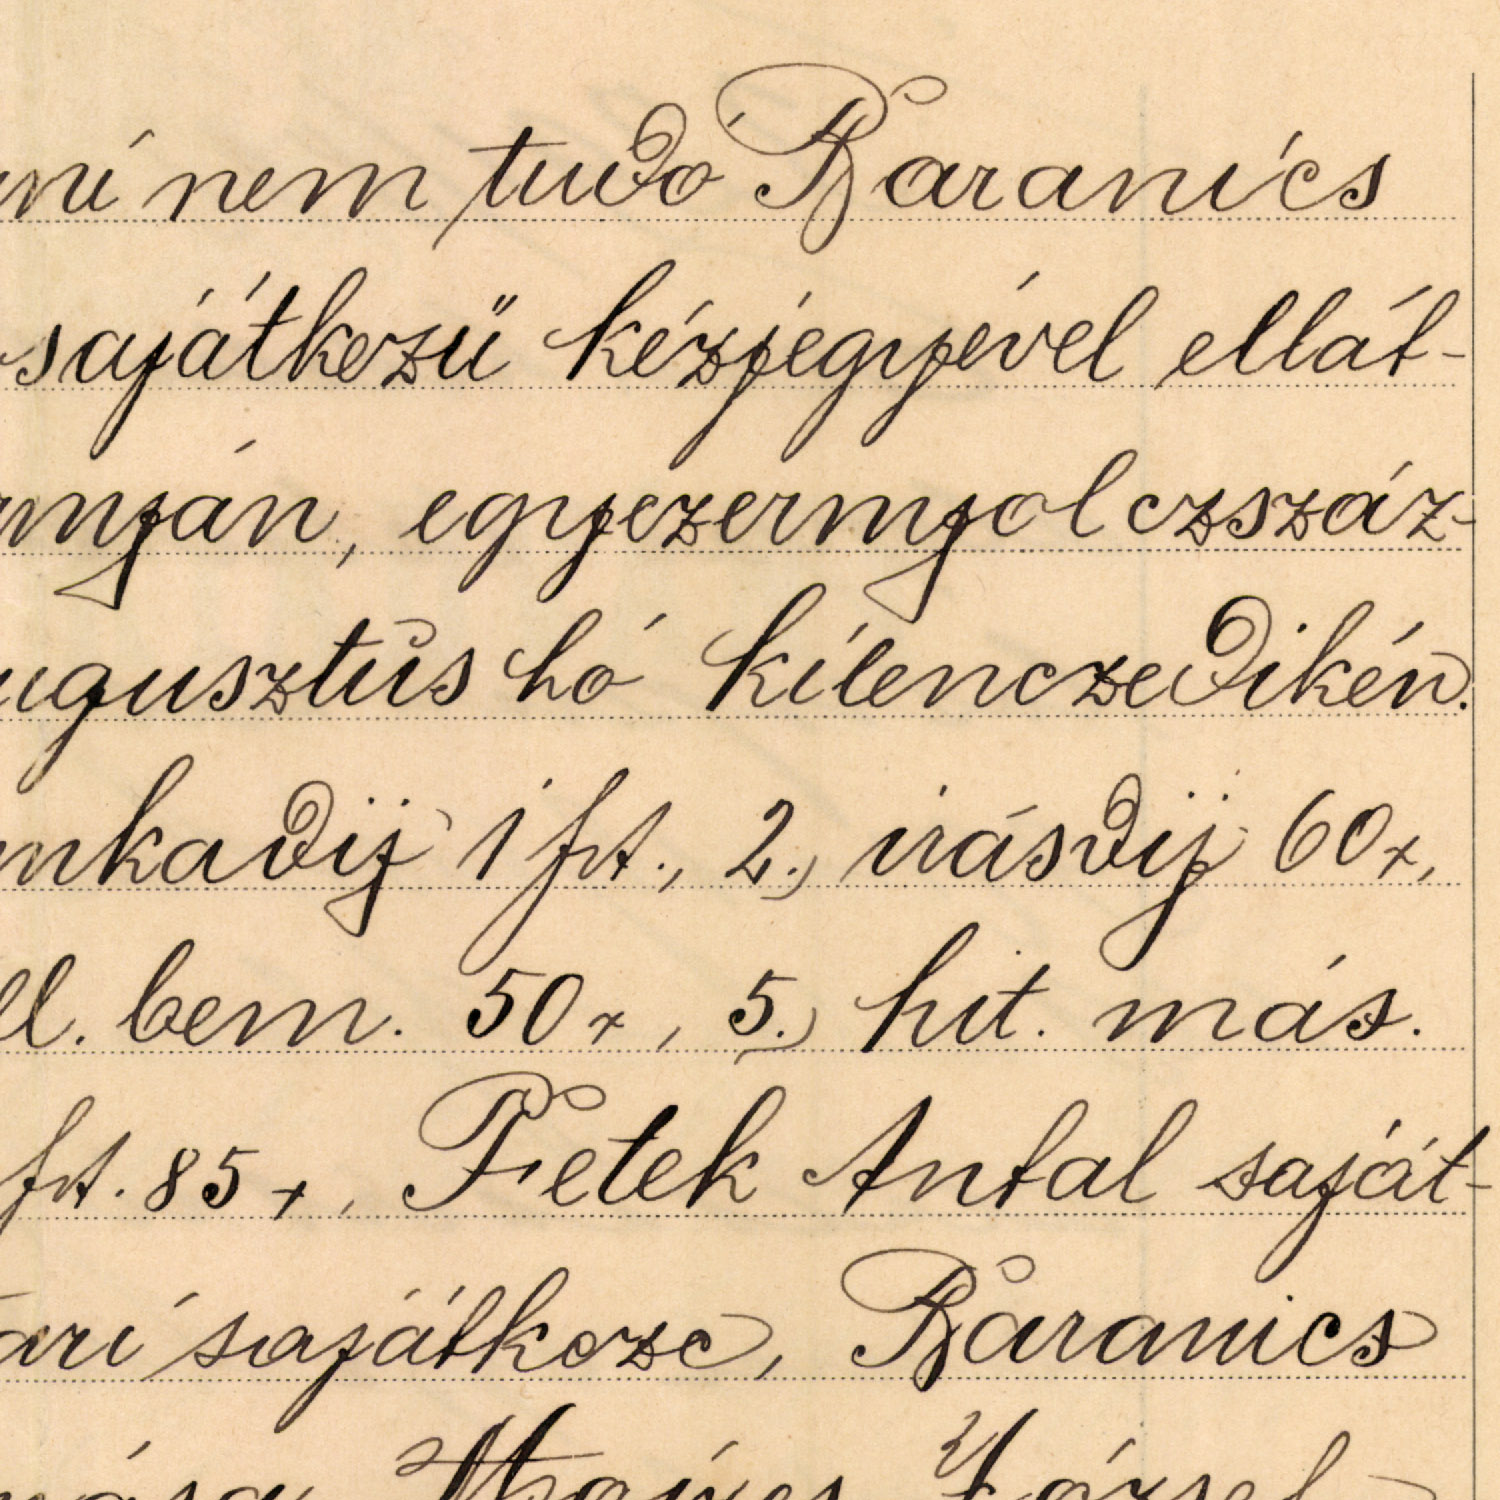 ni nem tudó Baranics
sajátkezü kézjegyével ellát-
nyján, egyezernyolczszáz-
ugusztus hó kilenczedikén.
nkadij 1 frt., 2.) irásdij 60 x,
ll. bem. 50 x, 5.) hit. más.
frt. 85 x, Fetek Antal saját-
ári sajátkeze, Baranics
József